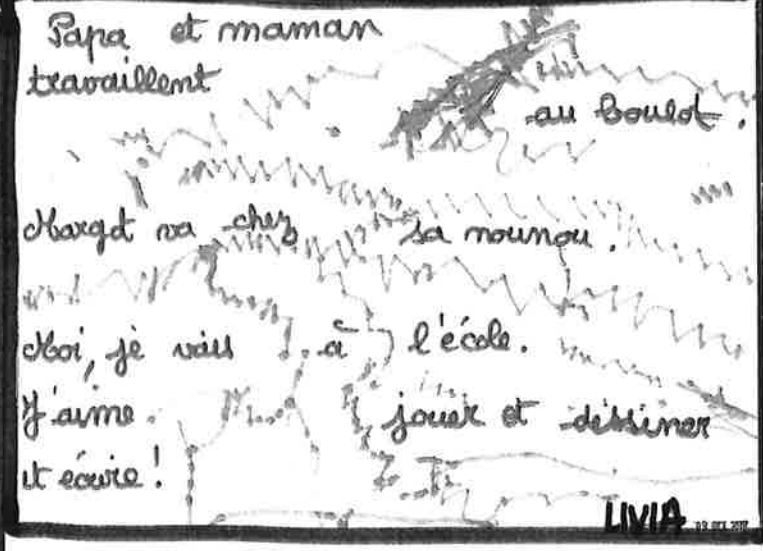 Papa et maman
travaillent
au boulot.
Margot va chez sa nounou.
Moi, je vais à l'école.
J'aime jouer et dessiner
et écrire !
LIVIA